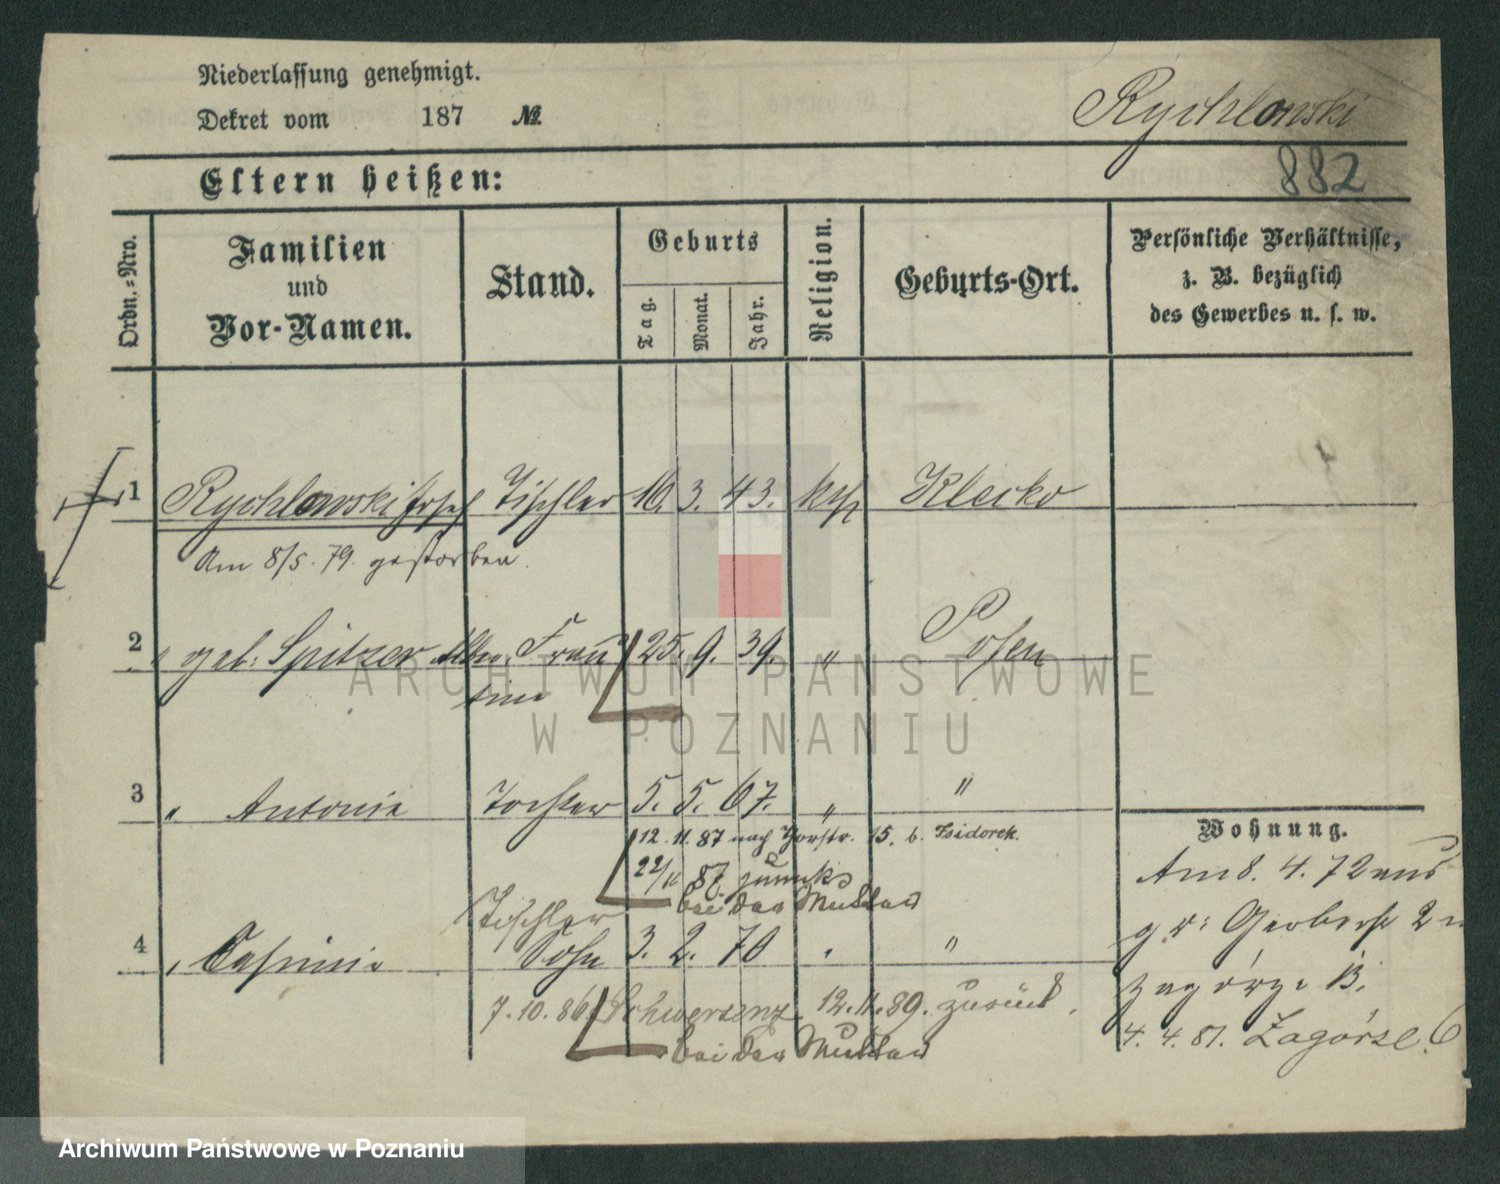 Niederlassung genehmigt.
Dekret vom 187 №
Rychlowski
882
Eltern heißen:
Ordn.-Nro.
Familien und Vor-Namen.
Stand.
Geburts
Tag.
Monat.
Jahr.
Religion.
Geburts-Ort.
Persönliche Verhältnisse,
z. B. bezüglich
des Gewerbes u. s. w.
1 Rychlowski Josef Tischler 16. 3. 43. kath Klecko
Am 8/5. 79. gestorben.
2 " geb: Spitzer Frau 25. 9. 39. " Posen
ARCHIWUM PAŃSTWOWE
W POZNANIU
3 " Antonie Tochter 5. 5. 67. " "
12. 11. 87 nach 15. b. Isidorek.
22/11 87 zurück
bei der Mutter
Tischler
4 " Casimir Sohn 3. 2. 70 " "
7. 10. 86. Schwersenz. 12. 11. 89. zurück.
bei der Mutter
Wohnung.
Am 8. 4. 72 aus
gr: Gerberstr 2 n
Zagórze 13.
4. 4. 81. Zagórze 6
Archiwum Państwowe w Poznaniu